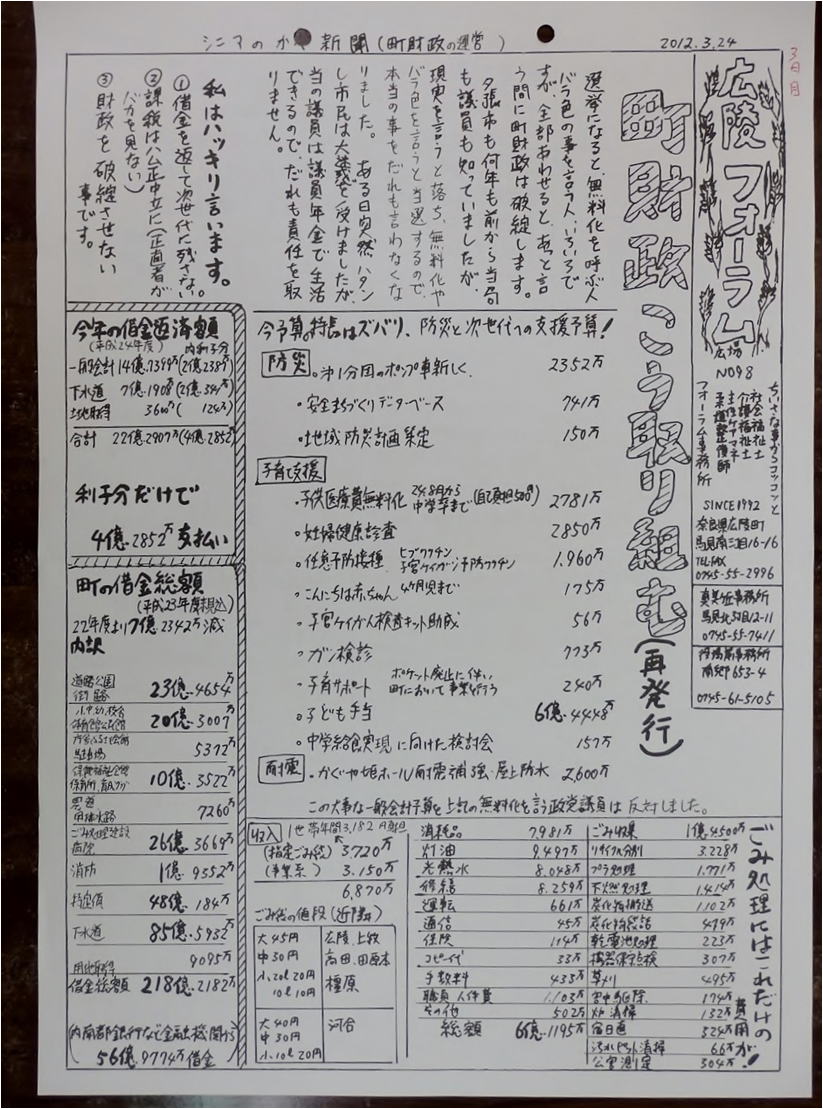 シニアのか 新聞(町財政の運営)
2012.3.24
3日月
広陵フォーラム
広場
NO98
ちいさな事からコツコツと
社会福祉士
介護福祉士
主任ケアマネ
柔道整復師
フォーラム事務所
SINCE1992
奈良県広陵町
馬見南三丁目16-16
TEL・FAX
0745-55-2996
真美ヶ丘事務所
馬見北5丁目12-11
0745-55-7411
南郷653-4
0745-61-5105
町財政こう取り組む(再発行)
選挙になると、無料化を呼ぶ人
バラ色の事を言う人、いろいろで
すが、全部あわせると、あっと言
う間に町財政は破綻します。
夕張市も何年も前から当局
も議員も知っていましたが、
現実を言うと落ち、無料化や
バラ色を言うと当選するので、
本当の事をだれも言わなくな
りました。 ある日突然ハタン
し市民は大義を受けましたが、
当の議員は議員年金で生活
できるので、だれも責任を取
りません。
私はハッキリ言います。
①借金を返して次世代に残さない。
②課税は公正中立に(正直者が
バカを見ない)
③財政を破綻させない
事です。
今予算。特長はズバリ、防災と次世代への支援予算!
防災
・第1分団のポンプ車新しく 2352万
・安全まちづくりデーターベース 741万
・地域防災計画策定 150万
子育て支援
・子供医療費無料化 24年8月から中学卒まで(自己負担500円) 2781万
・妊婦健康診査 2850万
・任意予防接種 ヒブワクチン 子宮ケイガン予防ワクチン 1.960万
・こんにちは赤ちゃん 4ヶ月児まで 175万
・子宮ケイがん検査キット助成 56万
・ガン検診 773万
・子育サポート ポケット廃止に伴い町において事業を行う 240万
・子ども手当 6億・4448万
・中学給食実現に向けた検討会 157万
耐震
・かぐや姫ホール耐震補強・屋上防水 2,600万
この大事な一般会計予算を上記の無料化を言う政党議員は反対しました。
今年の借金返済額
(平成24年度) 内利子分
一般会計 14億・7399万(2億・238万)
下水道 7億・1908万
土地取得 360万(124万)
合計 22億・2907万(4億・2852)
利子分だけで
4億・2852万支払い
町の借金総額
(平成23年度見込)
22年度より7億・2342万減
内訳
道路公園街路 23億・4654万
小・中・幼・校舎体育館公民館 20億・3007万
駐車場 5372万
保健福祉会館 保育所 10億・3522万
農道用排水路 7260万
ごみ処理建設 病院 26億・3669万
消防 1億・9552万
特定債 48億・184万
下水道 85億・5932万
用地取得 9095万
借金総額 218億・2182万
(内南都銀行など金融機関から)
56億・9774万借金
収入
1世帯年間3,182円負担
(指定ごみ袋) 3.720万
(事業系) 3.150万
6,870万
ごみ袋の値段(近隣)
大45円 広陵、上牧
中30円 高田、田原本
小20l20円 橿原
10l10円
大40円 河合
中30円
小10l20円
ごみ処理にはこれだけの費用が!
消耗品 7,981万
灯油 9.497万
光熱水 8.048万
修繕 8.259万
運転 661万
通信 45万
保険 114万
コピー代 33万
手数料 433万
職員人件費 1.103万
その他 502万
総額 6億・1195万
ごみ収集 1億4500万
リサイクル分別 3.228万
プラ処理 1.771万
不燃処理 1.414万
炭化物搬送 1.102万
炭化物袋詰 479万
乾電池処理 223万
機器保守点検 307万
草刈 495万
害虫駆除 174万
炉清掃 132万
宿日直 324万
汚水ピット清掃 66万
公害測定 304万